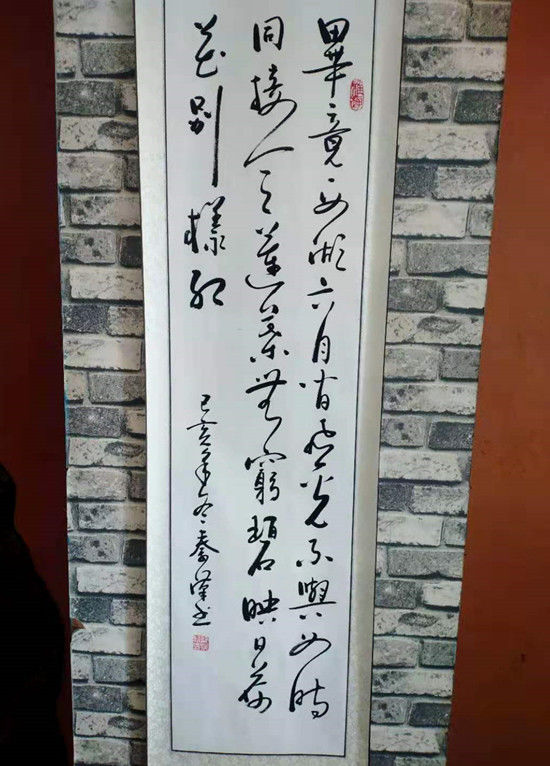 畢竟西湖六月中風光不與四時
同接天蓮葉無窮碧映日荷
花別樣紅
己亥年冬秦漢书